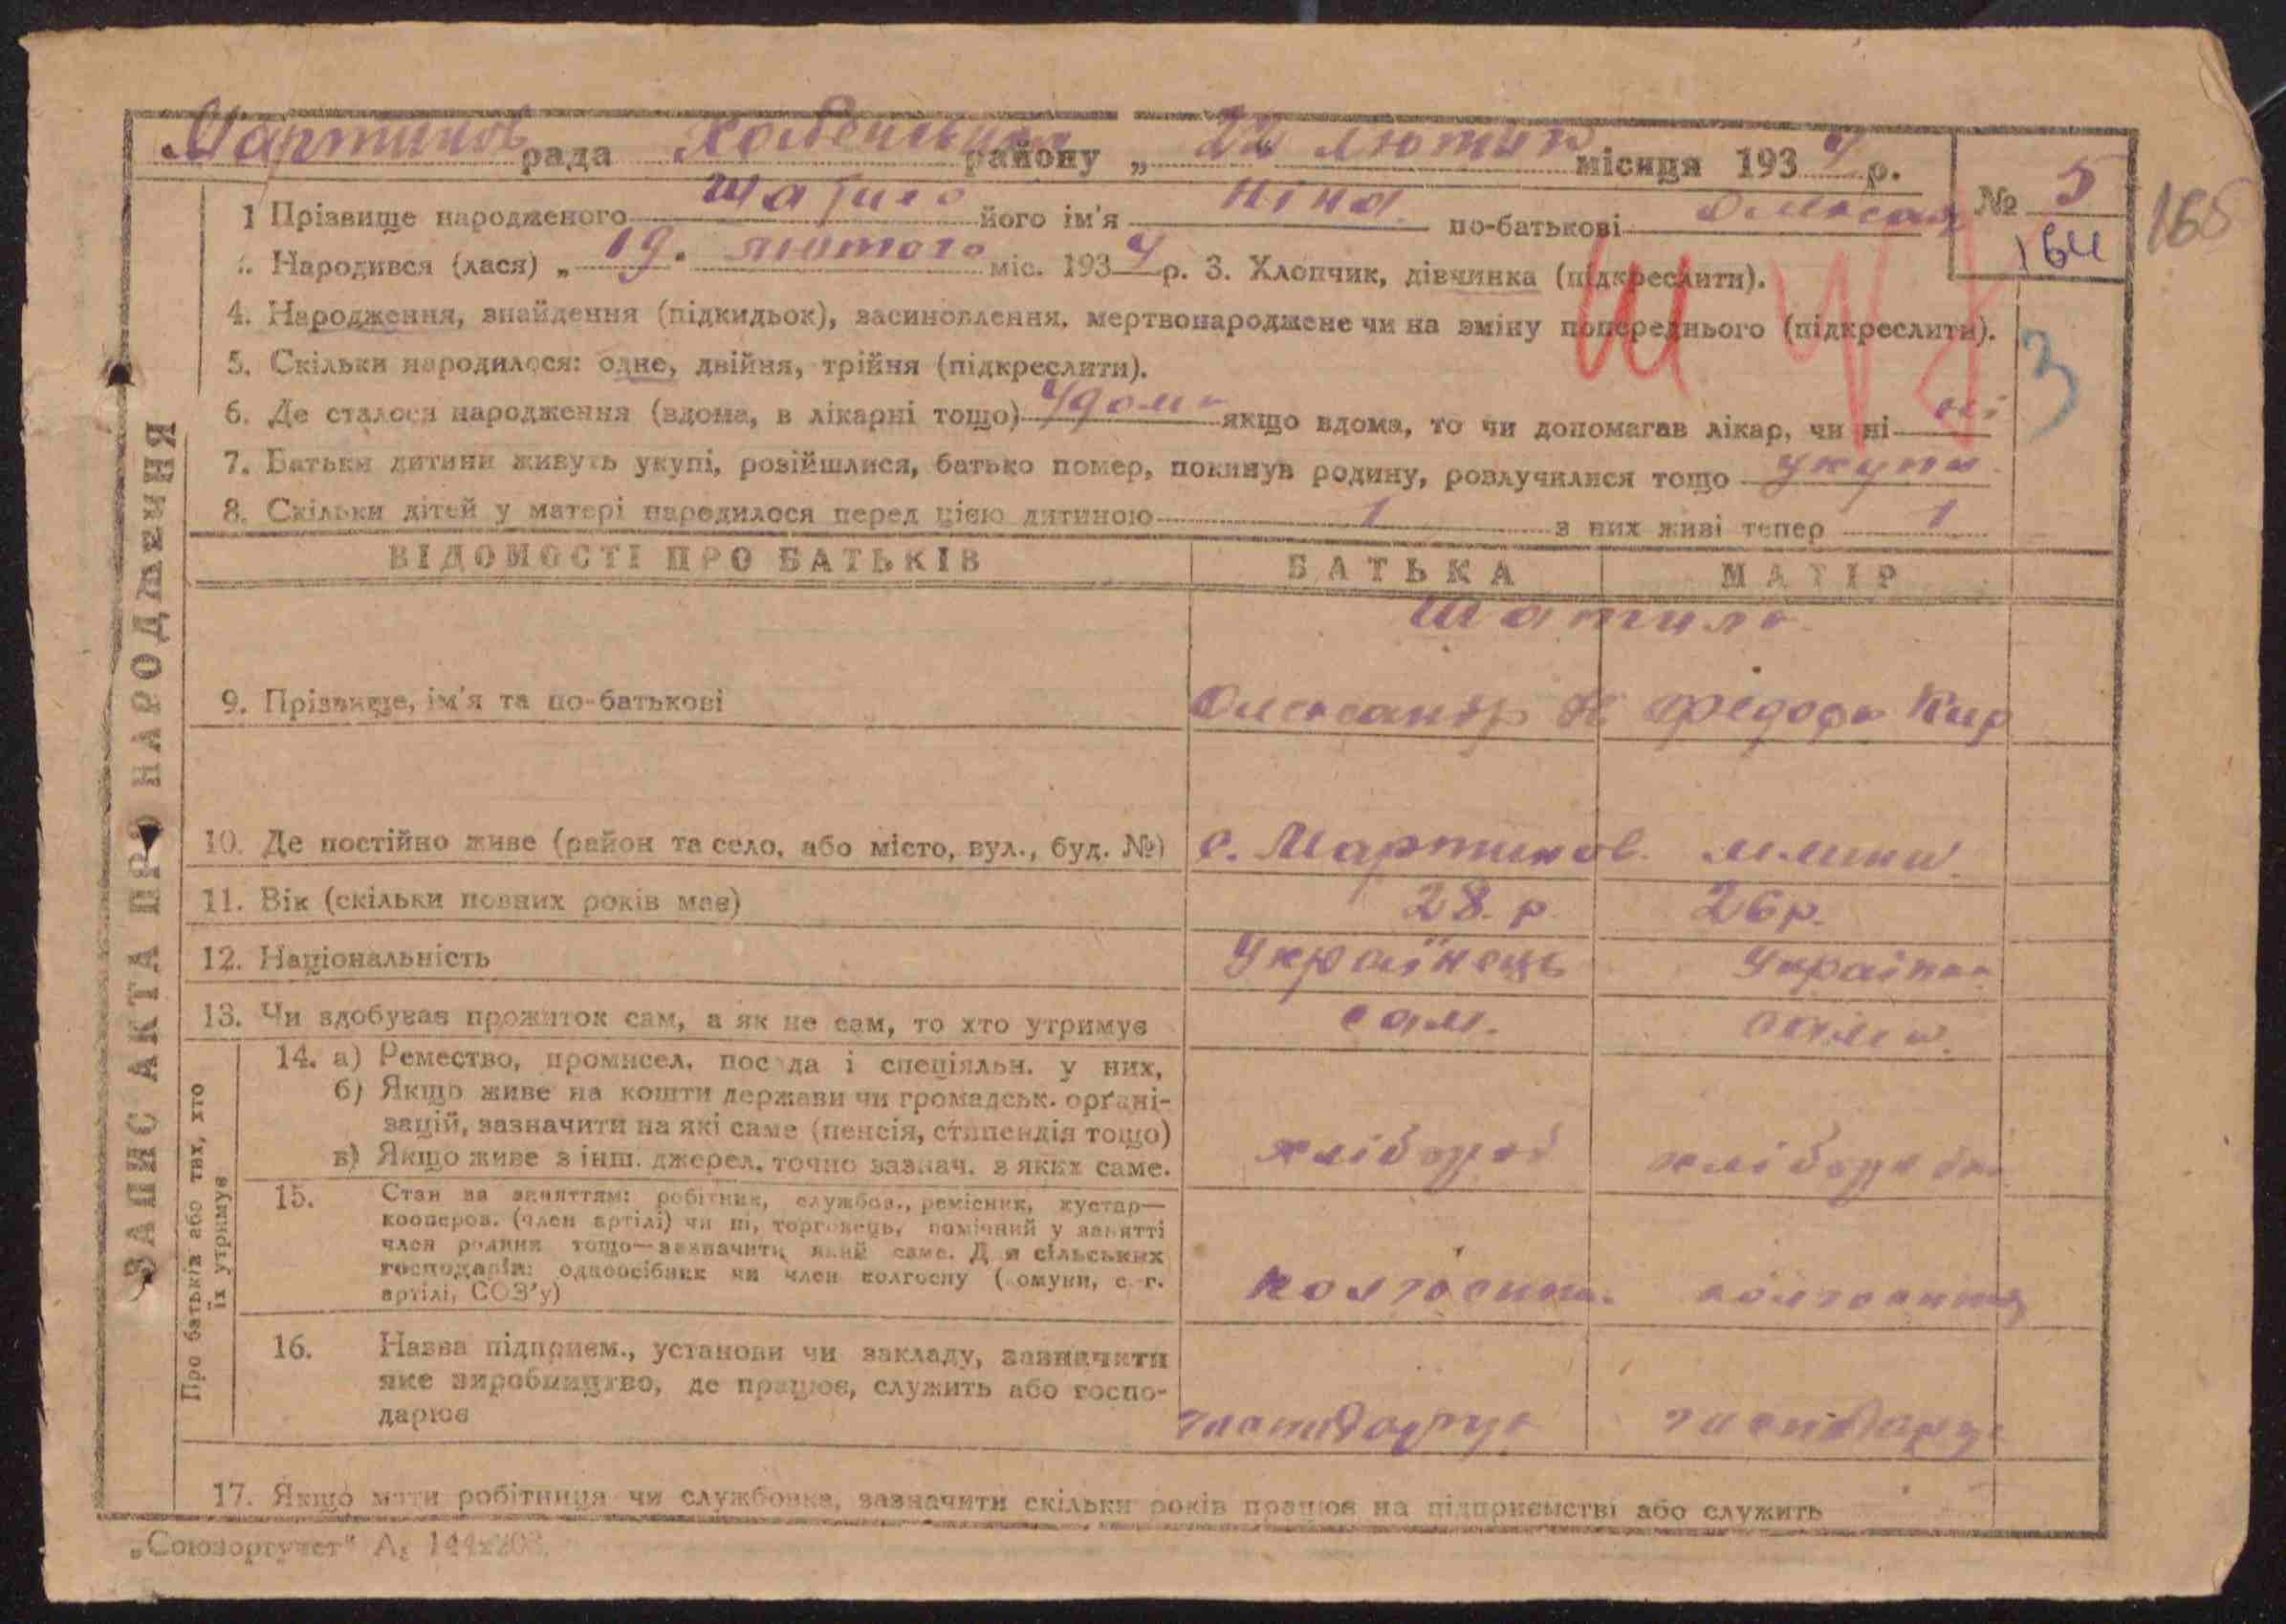 Мартинов рада Холменського району „ 22 лютня місяця 1934 р.
№ 5
164
165
1 Прізвище народженого Шатило його ім'я Ніна по-батькові Олексан
2. Народився (лася) „ 19. лютого міс. 1934 р. 3. Хлопчик, дівчинка (підкреслити).
4. Народження, знайдення (підкидьок), засиновлення, мертвонароджене чи на зміну попереднього (підкреслити).
3
5. Скільки народилося: одне, двійня, трійня (підкреслити).
6. Де сталося народження (вдома, в лікарні тощо) удома якщо вдома, то чи допомагав лікар, чи ні ні
7. Батьки дитини живуть укупі, розійшлися, батько помер, покинув родину, розлучилися тощо укупи
8. Скільки дітей у матері народилося перед цією дитиною 1 з них живі тепер 1
ЗАПИС АКТА ПРО НАРОДЖЕННЯ
ВІДОМОСТІ ПРО БАТЬКІВ БАТЬКА МАТІР
Шатило
9. Прізвище, ім'я та по-батькові Олександр Н Федора Кир
10. Де постійно живе (район та село, або місто, вул., буд. №) с. Мартинов.
11. Вік (скільки повних років має) 28. р 26 р.
12. Національність Українець Українка
13. Чи здобував прожиток сам, а як не сам, то хто утримує сам. сама.
Про батьків або тих, хто
їх утримує
14. а) Ремество, промисел, посада і спеціяльн. у них,
б) Якщо живе на кошти держави чи громадськ. орґані-
зацій, зазначити на які саме (пенсія, стипендія тощо)
в) Якщо живе з інш. джерел, точно зазнач. з яких саме. хлібороб хлібороб
15. Стан за заняттям: робітник, службов., ремісник, кустар—
кооперов. (член артілі) чи ні, торговець, помічний у занятті
член родини тощо—зазначити який саме. Для сільських
господарів: одноосібник чи член колгоспу (комуни, с.-г.
артілі, СОЗ'у) колгоспн. колгоспниця
16. Назва підприєм., установи чи закладу, зазначити
яке виробництво, де працює, служить або госпо-
дарює господарує господарує
17. Якщо мати робітниця чи службовка, зазначити скільки років працює на підприємстві або служить
„Союзоргучет“ А₅ 144х203.